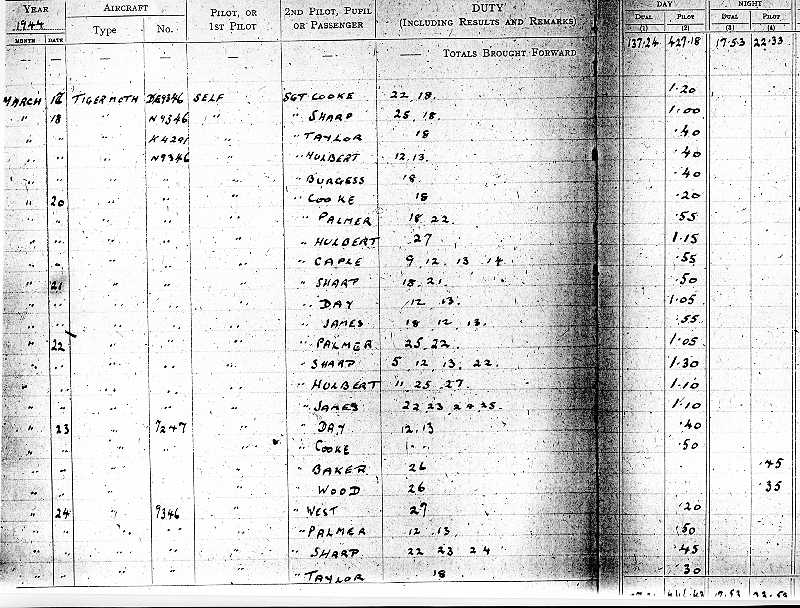 YEAR AIRCRAFT PILOT, OR 2ND PILOT, PUPIL DUTY DAY NIGHT
1944 Type No. 1ST PILOT OR PASSENGER (INCLUDING RESULTS AND REMARKS) DUAL PILOT DUAL PILOT
MONTH DATE (1) (2) (3) (4)
— — — — — — TOTALS BROUGHT FORWARD 137.24 427.18 17.53 22.33
MARCH TIGERMOTH DE9346 SELF SGT COOKE 22 18. 1.20
" 18 " N9346 " " SHARP 25, 18. 1.00
" " K4291 " TAYLOR 18 .40
" " N9346 " " HULBERT 12.13. .40
" " " " " BURGESS 18. .40
" 20 " " " " COOKE 18 .20
" " " " " PALMER 18 22. .55
" " " " " HULBERT 27 1.15
" " " " " CAPLE 9 12. 13 14 .55
" 21 " " " " SHARP 18, 21. .50
" " " " " DAY 12 13. 1.05
" " " " " JAMES 18 12 13. .55
" 22 " " " " PALMER 25, 22. 1.05
" " " " " SHARP 5, 12, 13, 22. 1.30
" " " " " HULBERT 11 25 27. 1.10
" " " " " JAMES 22 23 24 25. 1.10
" 23 " 7247 " " DAY 12.13 .40
" " " " " COOKE .50
" " " " " BAKER 26 .45
" " " " " WOOD 26 .35
" 24 " 9346 " " WEST 27 .20
" " " " " PALMER 12 13. .50
" " " " " SHARP 22 23 24 .45
" " " " " TAYLOR 18 .30
17.53